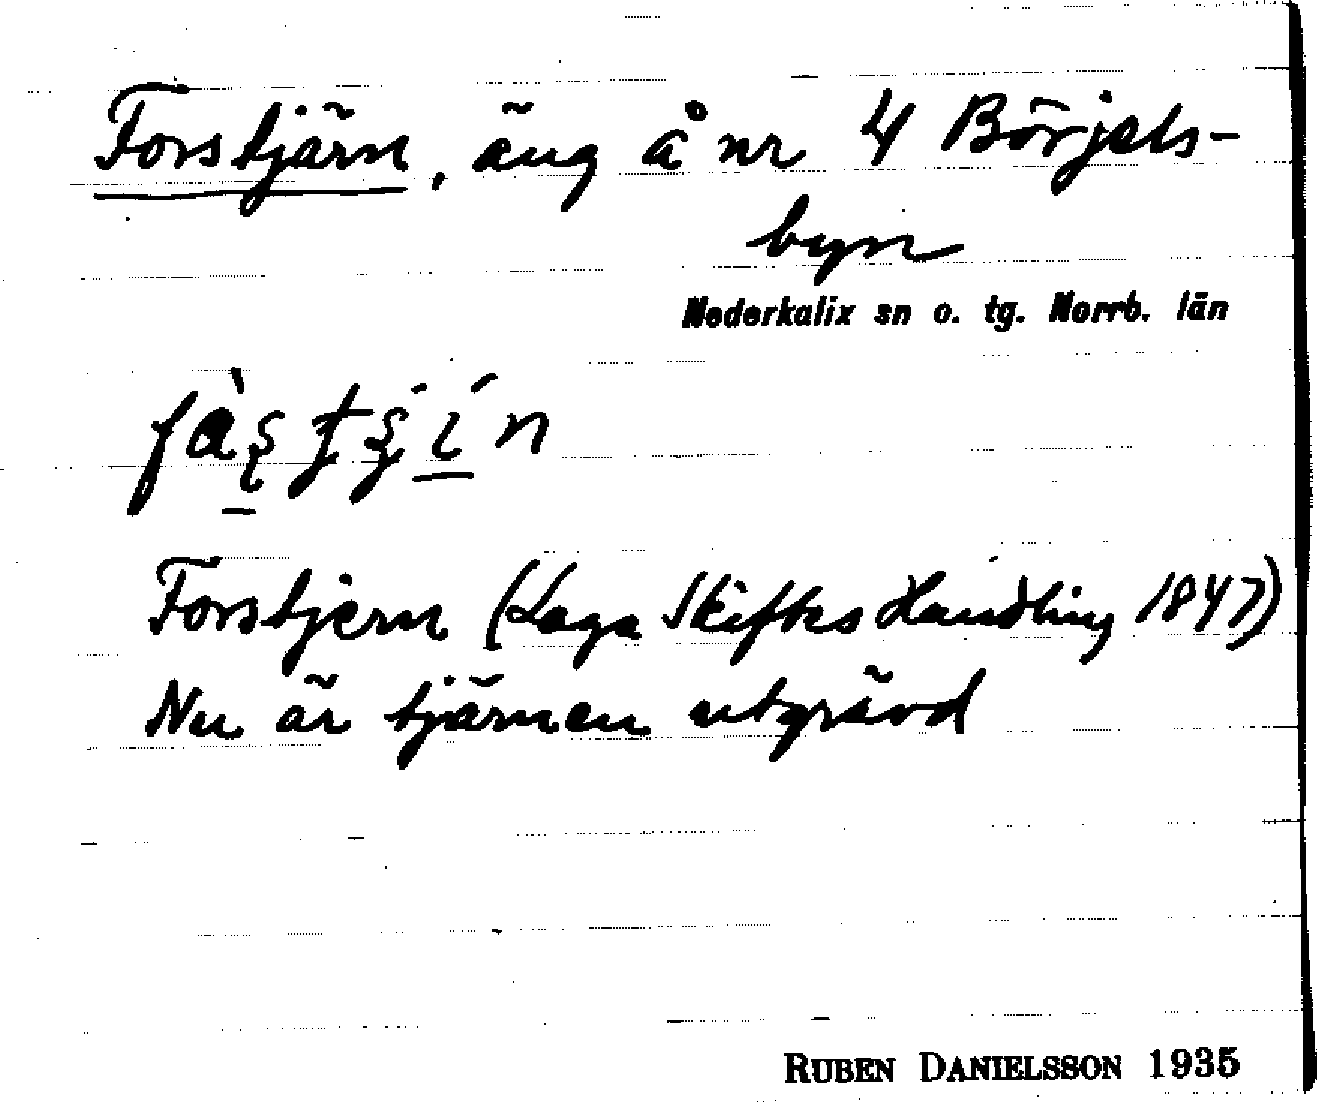 Forstjärn, äng å nr 4 Börjels-
byn
Nederkalix sn o. tg. Norrb. län
Forstjern (Laga Skiftes Handling 1847)
Nu är tjärnen utgrävd
RUBEN DANIELSSON 1935